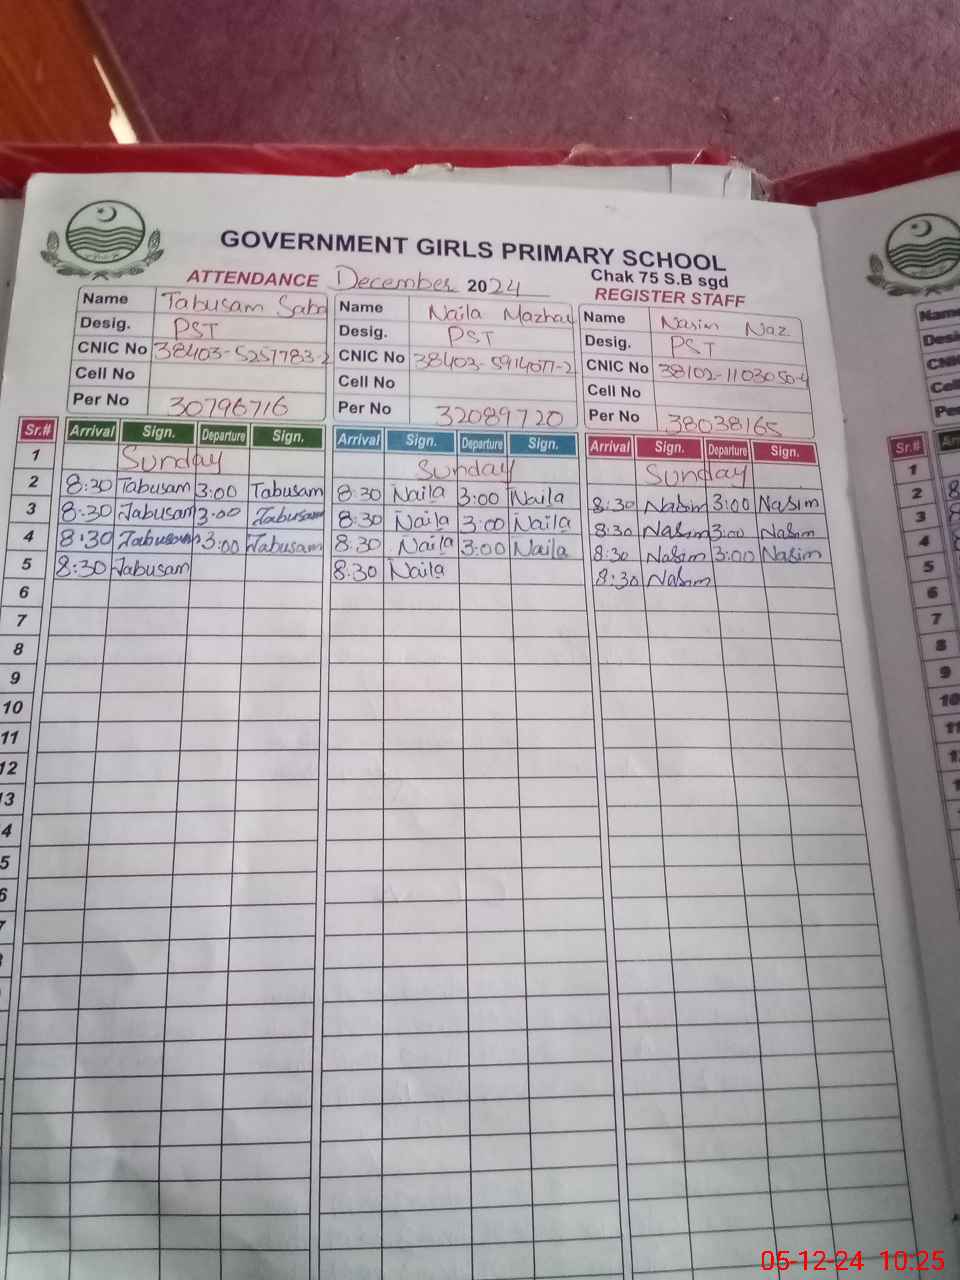 GOVERNMENT GIRLS PRIMARY SCHOOL
Chak 75 S.B sgd
ATTENDANCE December 2024 REGISTER STAFF
Name Tabusam Saba Name Naila Mazhar Name Nasim Naz
Desig. PST Desig. PST Desig. PST
CNIC No 38403-5257783-2 CNIC No 38403-5914077-2 CNIC No 38102-1103050-4
Cell No Cell No Cell No
Per No 30796716 Per No 32089720 Per No 38038165
Sr.# Arrival Sign. Departure Sign. Arrival Sign. Departure Sign. Arrival Sign. Departure Sign.
1 Sunday Sunday Sunday
2 8:30 Tabusam 3:00 Tabusam 8:30 Naila 3:00 Naila 8:30 Nasim 3:00 Nasim
3 8:30 Tabusam 3:00 Tabusam 8:30 Naila 3:00 Naila 8:30 Nasim 3:00 Nasim
4 8:30 Tabusam 3:00 Tabusam 8:30 Naila 3:00 Naila 8:30 Nasim 3:00 Nasim
5 8:30 Tabusam 8:30 Naila 8:30 Nasim
6
7
8
9
10
11
12
13
4
5
6
7
Name
Desi
CNIC
Cell
Per
Sr.#
1
2
3
4
5
6
7
8
9
10
11
05-12-24 10:25